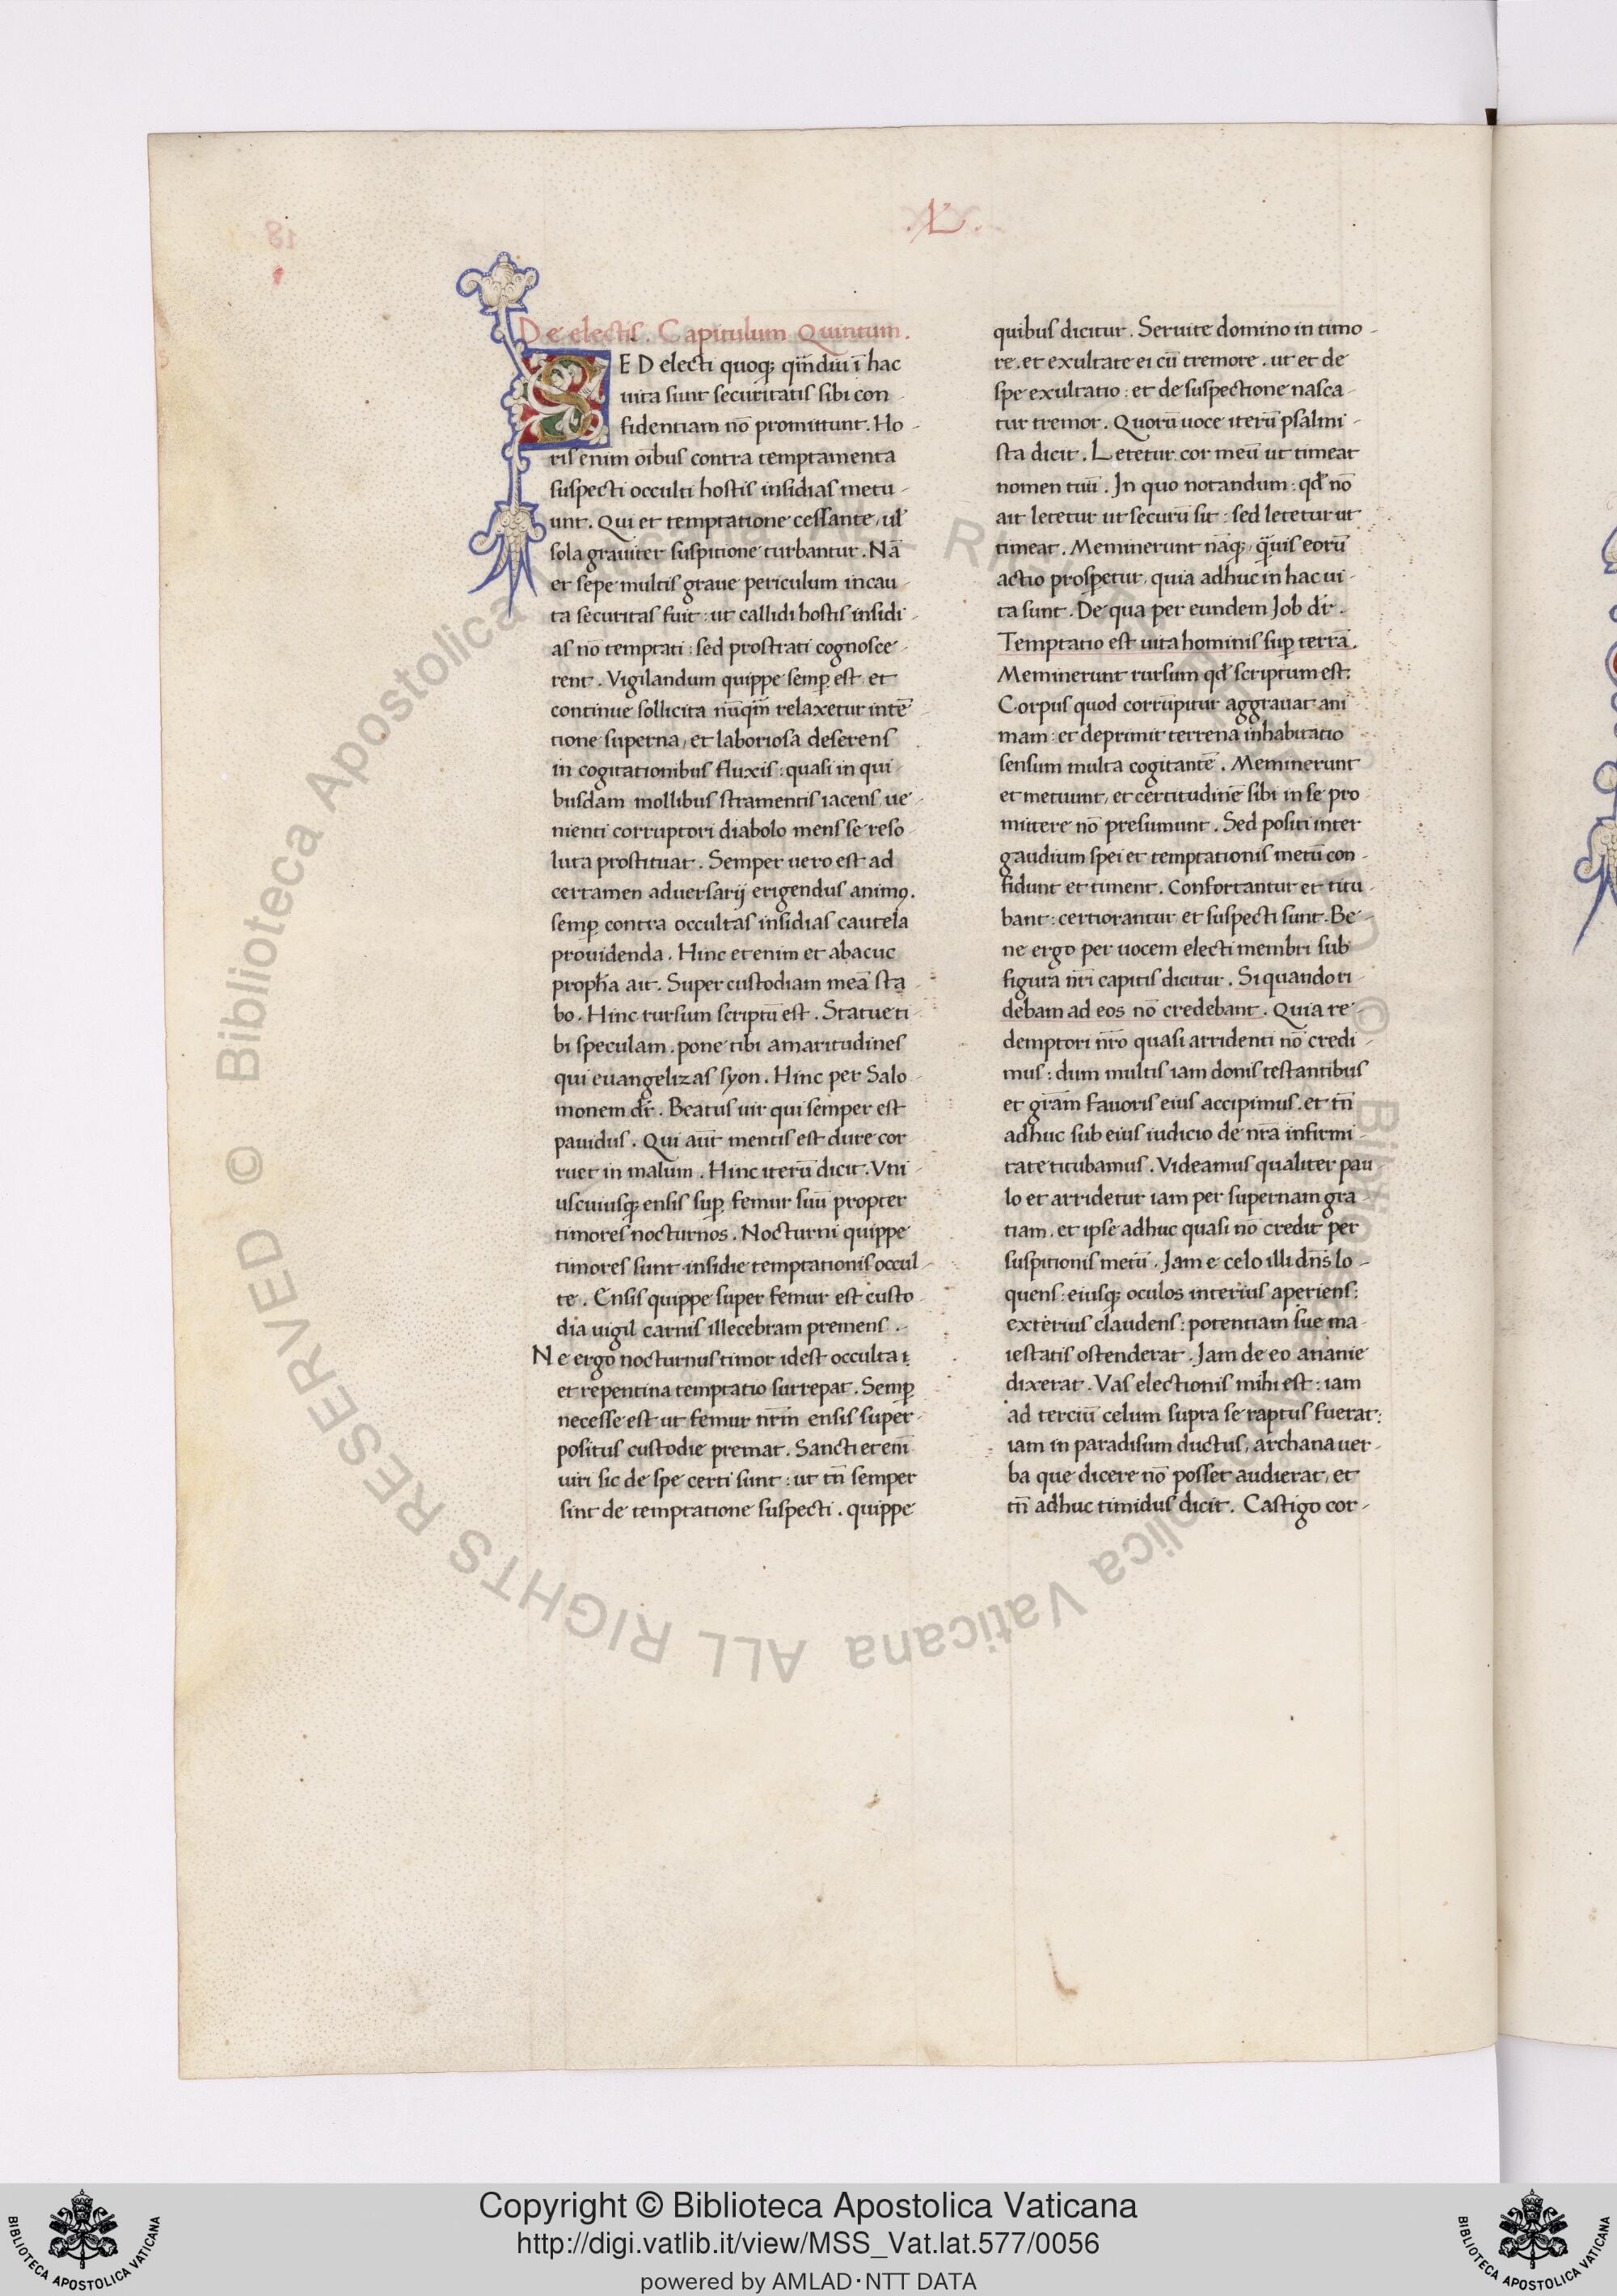 .L.
De electis. Capitulum Quintum.
SED electi quoq; qm̅diu i̅ hac
uita sunt securitatis sibi con-
fidentiam no̅ promittunt. Ho-
ris enim oi̅bus contra temptamenta
suspecti occulti hostis insidias metu-
unt. Qui et temptatione cessante, ul̅
sola grauiter suspitione turbantur. Na̅
et sepe multis graue periculum incau-
ta securitas fuit: ut callidi hostis insidi-
as no̅ temptati: sed prostrati cognosce-
rent. Vigilandum quippe semp̲ est et
continue sollicita nu̅qm̅ relaxetur inte̅-
tione superna, et laboriosa deserens
in cogitationibus fluxis: quasi in qui-
busdam mollibus stramentis iacens, ue-
nienti corruptori diabolo mens se reso-
luta prostituat. Semper uero est ad
certamen aduersarij erigendus animꝯ.
semp̲ contra occultas insidias cautela
prouidenda. Hinc etenim et abacuc
proph̅a ait. Super custodiam mea̅ sta-
bo. Hinc rursum scriptu̅ est. Statue ti-
bi speculam. pone tibi amaritudines
qui euangelizas syon. Hinc per Salo-
monem dr̅. Beatus uir qui semper est
pauidus. Qui aut̅ mentis est dure cor-
ruet in malum. Hinc iteru̅ dicit. Vni-
uscuiusq; ensis sup̲ femur suu̅ propter
timores nocturnos. Nocturni quippe
timores sunt insidie temptationis occul-
te. Ensis quippe super femur est custo-
dia uigil carnis illecebram premens.
Ne ergo nocturnus timor idest occulta
et repentina temptatio surrepat. Semp̲
necesse est ut femur nr̅m ensis super-
positus custodie premat. Sancti et eni̅
uiri sic de spe certi sunt: ut tn̅ semper
sint de temptatione suspecti. quippe
quibus dicitur. Seruite domino in timo-
re. et exultate ei cu̅ tremore. ut et de
spe exultatio: et de suspectione nasca-
tur tremor. Quoru̅ uoce iteru̅ psalmi-
sta dicit. Letetur cor meu̅ ut timeat
nomen tuu̅. In quo notandum: qd̅ no̅
ait letetur ut securu̅ sit: sed letetur ut
timeat. Meminerunt na̅q;, q̅uis eoru̅
actio prosp̲etur, quia adhuc in hac ui-
ta sunt. De qua per eundem Job dr̅.
Temptatio est uita hominis sup̲ terra̅.
Meminerunt rursum qd̅ scriptum est.
Corpus quod corru̅pitur aggrauat ani-
mam: et deprimit terrena inhabitatio
sensum multa cogitante̅. Meminerunt
et metuunt, et certitudine̅ sibi in se pro-
mittere no̅ presumunt. Sed positi inter
gaudium spei et temptationis metu̅ con-
fidunt et timent. Confortantur et titu-
bant: certiorantur et suspecti sunt. Be-
ne ergo per uocem electi membri sub
figura nr̅i capitis dicitur. Si quando ri-
debam ad eos no̅ credebant. Quia re-
demptori nr̅o quasi arridenti no̅ credi-
mus: dum multis iam donis testantibus
et gra̅m fauoris eius accipimus. et tn̅
adhuc sub eius iudicio de nr̅a infirmi-
tate titubamus. Videamus qualiter pau-
lo et arridetur iam per supernam gra-
tiam. et ipse adhuc quasi no̅ credit per
suspitionis metu̅. Jam e celo illi dn̅s lo-
quens: eiusq; oculos interius aperiens:
exterius claudens: potentiam sue ma-
iestatis ostenderat. Jam de eo ananie
dixerat. Vas electionis mihi est: iam
ad terciu̅ celum supra se raptus fuerat:
iam in paradisum ductus, archana uer-
ba que dicere no̅ posset audierat, et
tn̅ adhuc timidus dicit. Castigo cor-
Copyright © Biblioteca Apostolica Vaticana
http://digi.vatlib.it/view/MSS_Vat.lat.577/0056
powered by AMLAD·NTT DATA
BIBLIOTECA APOSTOLICA VATICANA
BIBLIOTECA APOSTOLICA VATICANA
© Biblioteca Apostolica Vaticana ALL RIGHTS RESERVED